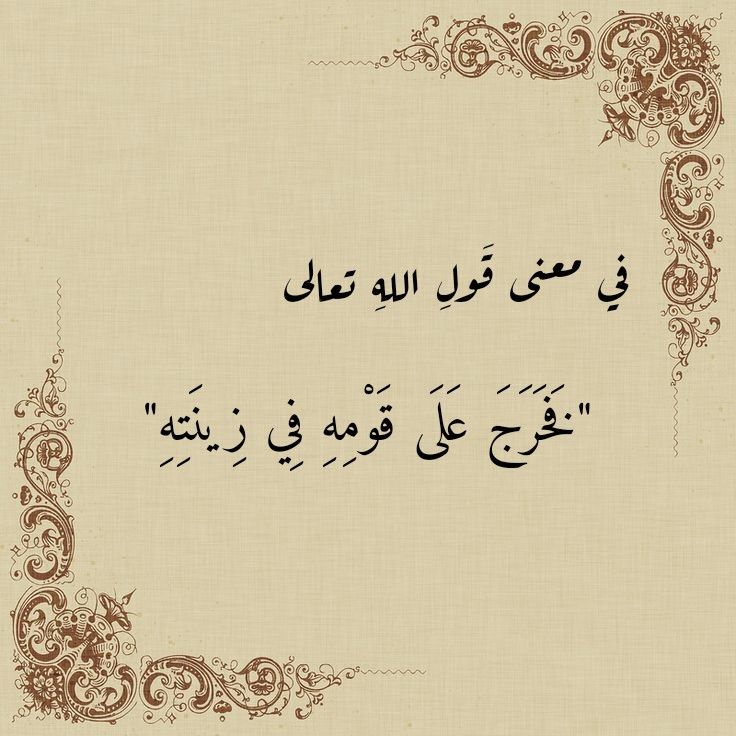 في معنى قَولِ اللهِ تعالى
"فَخَرَجَ عَلَى قَوْمِهِ فِي زِينَتِهِ"